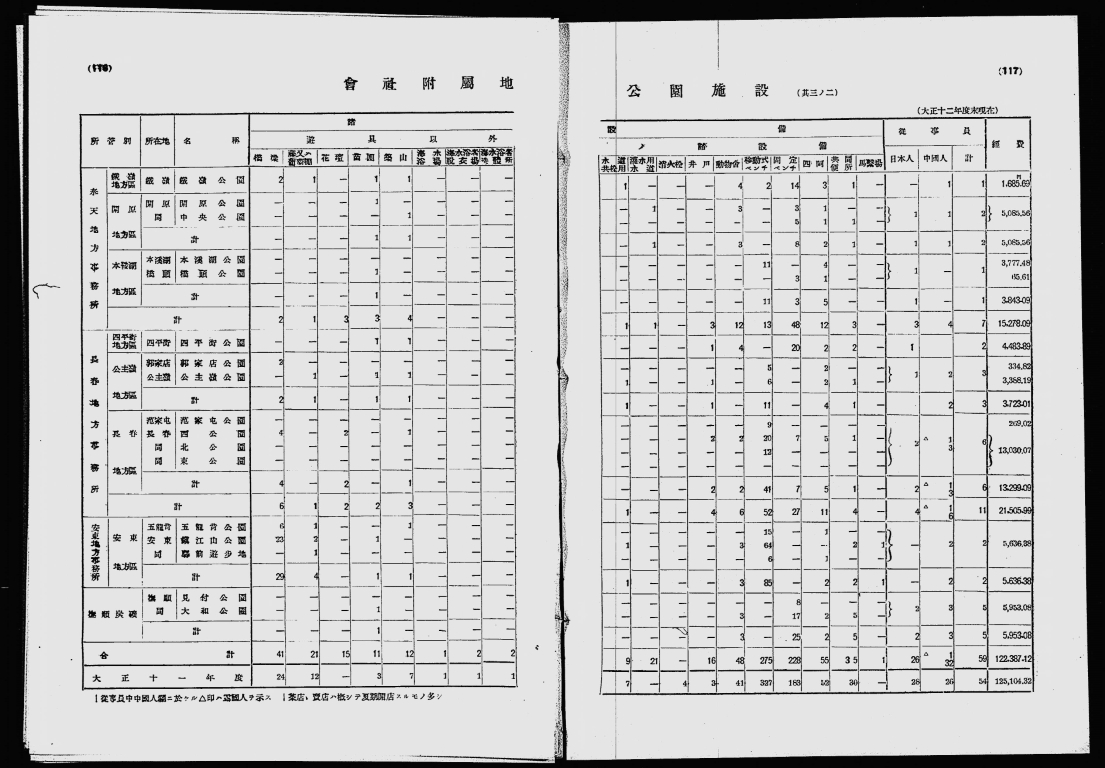 (116)
會社附屬地
諸
所管別 所在地 名稱 遊具以外
橋梁 花壇 苗圃 築山 海水浴場
奉天地方事務所 鐵嶺地方區 鐵嶺 鐵嶺公園 2 1 — 1 1 — — —
開原地方區 開原 開原公園 — — — 1 — — — —
同 中央公園 — — — — 1 — — —
計 — — — 1 1 — — —
本溪湖地方區 本溪湖 本溪湖公園 — — — — — — — —
橋頭 橋頭公園 — — — 1 — — — —
計 — — — 1 — — — —
計 2 1 3 3 4 — — —
長春地方事務所 四平街地方區 四平街 四平街公園 — — — 1 1 — — —
公主嶺地方區 郭家店 郭家店公園 2 — — — — — — —
公主嶺 公主嶺公園 — 1 — 1 1 — — —
計 2 1 — 1 1 — — —
長春地方區 范家屯 范家屯公園 — — — — — — — —
長春 西公園 4 — 2 — 1 — — —
同 北公園 — — — — — — — —
同 東公園 — — — — — — — —
計 4 — 2 — 1 — — —
計 6 1 2 2 3 — — —
安東地方事務所 安東地方區 五龍背 五龍背公園 6 1 — — 1 — — —
安東 鎭江山公園 23 2 — 1 — — — —
同 驛前遊步地 — 1 — — — — — —
計 29 4 — 1 1 — — —
撫順炭礦 撫順 見付公園 — — — — — — — —
同 大和公園 — — — 1 — — — —
計 — — — 1 — — — —
合計 41 21 15 11 12 1 2 2
大正十一年度 24 12 — 3 7 1 1 1
(117)
公園施設 (其三ノ二)
(大正十二年度末現在)
設備 從事員 經費
ノ諸設備
水道共栓用 消火栓 井戶 動物舍 移動式ベンチ 固定ベンチ 四阿 共同便所 馬繋場 日本人 中國人 計
1 — — — 4 2 14 3 1 — — 1 1 1.685.69
— 1 — — 3 — 3 1 — —
— — — — — — 5 1 1 — 1 1 2 5,085,56
— 1 — — 3 — 8 2 1 — 1 1 2 5,085,56
— — — — — 11 — 4 — — 3,777.48
— — — — — — 3 1 — — 1 — 1 65,61
— — — — — 11 3 5 — — 1 — 1 3.843.09
1 1 — 3 12 13 48 12 3 — 3 4 7 15.278.09
— — — 1 4 — 20 2 2 — 1 2 4.483.89
— — — — — 5 — 2 — — 334,82
1 — — 1 — 6 — 2 1 — 1 2 3 3,388,19
1 — — 1 — 11 — 4 1 — 2 3 3.723.01
— — — — — 9 — — — — 269,02
— — — 2 2 20 7 5 1 — 2 △1 3 6 13,030,07
— — — — — 12 — — — —
— — — — — — — — — —
— — — 2 2 41 7 5 1 — 2 △1 3 6 13.299.09
1 — — 4 6 52 27 11 4 — 4 △1 6 11 21.505.99
— — — — — 15 — 1 — —
1 — — — 3 64 — — 2 1 — 2 2 5,636,38
— — — — — 6 — 1 — —
1 — — — 3 85 — 2 2 1 — 2 2 5.636.38
— — — — — — 8 — — —
— — — — 3 — 17 2 5 — 2 3 5 5,953.08
— — — — 3 — 25 2 5 — 2 3 5 5.953.08
9 21 — 16 48 275 228 55 35 1 26 △1 32 59 122.387.12
7 — 4 3 41 327 163 52 30 — 28 26 54 125,104.32